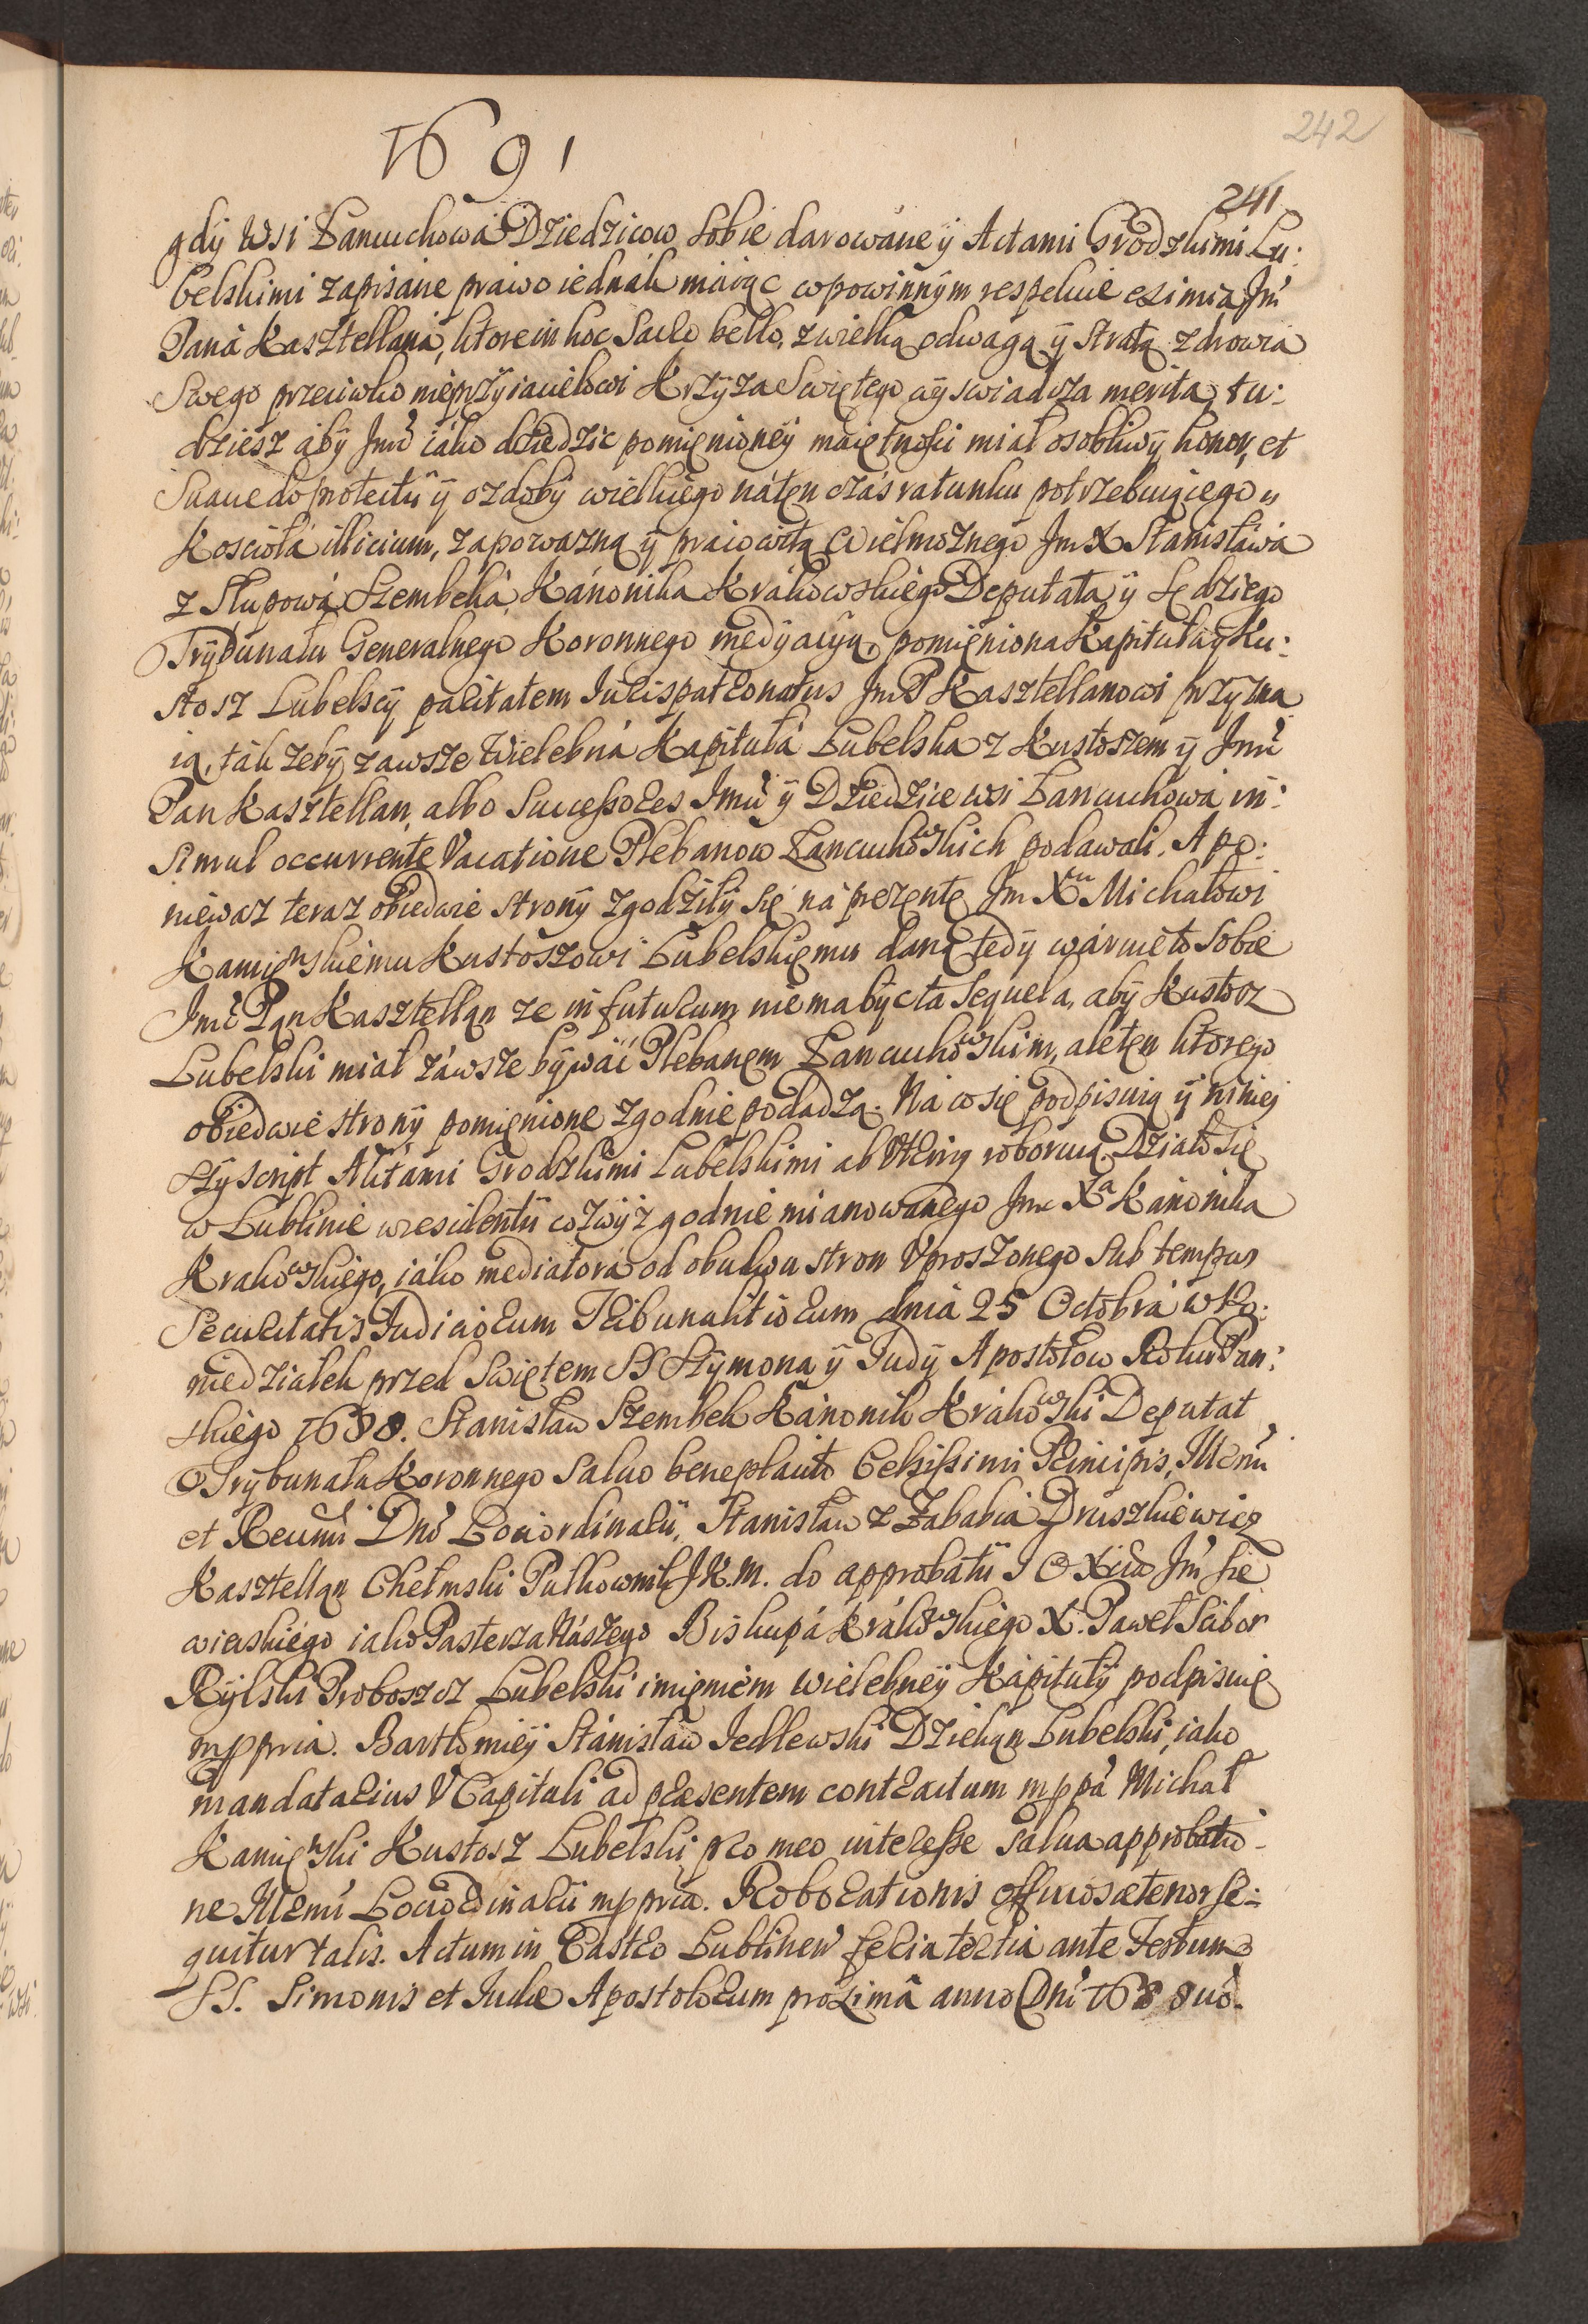 242
1691
241
gdÿ Wsi Łancuchowa Dziedzicow Sobie darowane ÿ Actami Grodzkimi Lu:
belskimi zapisane prawo iednak maiąc w powinnym respekcie eximia Jmći
Pana Kasztellana, ktore in hoc Sacro bello, z wielką odwagą ÿ stratą zdrowia
Swego przeciwko nieprzÿiacielowi Krzÿza Swiętego wÿswiadcza merita, tu:
dziesz abÿ Jmć iako dziedzic pomienioneÿ maiętnosci miał osobliwÿ honor, et
Suaue do protectiÿ ÿ ozdobÿ wielkiego na ten czas ratunku potrzebuiącego
Koscioła illicium, za powazną ÿ prawowitą Wielmoznego Jm X Stanisława
z Słupowa Szembeka, Kanonika Krakowskiego Deputata ÿ Sędziego
Trÿbunału Generalnego Koronnego medÿacÿą, pomieniona Kapituła ÿ Ku:
stosz Lubelscÿ paritatem Jurispatronatus Jm P Kasztellanowi przÿzna
ią, tak zebÿ zawsze Wielebna Kapituła Lubelska z Kustoszem ÿ Jmć
Pan Kasztellan, albo Successores Jmć ÿ Dziedzice wsi Łancuchowa in:
simul occurrente Vacatione Plebanow Łancuchowskich podawali. A po:
niewaz teraz obiedwie stronÿ zgodziłÿ się na prezentę Jm Xu Michałowi
Kamienskiemu Kustoszowi Lubelskiemu daną tedÿ waruie to Sobie
Jmć Pan Kasztellan ze in futurum nie ma bÿc ta Sequela, abÿ Kustosz
Lubelski miał zawsze bÿwać Plebanem Łancuchowskim, ale ten ktorego
obiedwie stronÿ pomienione zgodnie podadzą. Na co się podpisuią ÿ niniej
szÿ script Aktami Grodzkimi Lubelskimi ab utrinq roboruią. Działo się
w Lublinie w residentii wzwÿż godnie mianowanego Jm Xa Kanonika
Krakowskiego, iako mediatora od obudwu stron Vproszonego Sub tempus
Securitatis Judiciorum Tribunalitiorum dnia 25 Octobra w Po:
niedziałek przed Swiętem SS Szÿmona ÿ Judÿ Apostołow Roku Pan:
skiego 1688. Stanisław Szembek Kanonik Krakowski Deputat
Trÿbunału Koronnego Saluo beneplacito Celsissimi Principis, Illrmi
et Reumi Dni Lociordinarii, Stanisław z Zababia Druszkiewicz
Kasztellan Chełmski Pułkownik J.K.M. do approbatii J O Xcia Jm Sie
wierskiego iako Pasterza Naszego Biskupa Krakowskiego X. Paweł Scibor
Rÿlski Proboszcz Lubelski imieniem wielebneÿ Kapitułÿ podpisuię
mppria. Bartłomieÿ Stanisław Jedlewski Dziekan Lubelski, iako
mandatarius V Capituli ad præsentem contractum mppa Michał
Kamienski Kustosz Lubelski pro meo interesse salua approbatio
ne Illrmi Lociordinarii mppria. Roborationis officiosæ tenor se:
quitur talis. Actum in Castro Lublinen feria tertia ante Festum
SS. Simonis et Judæ Apostolorum proximâ anno Dni 1688uo.